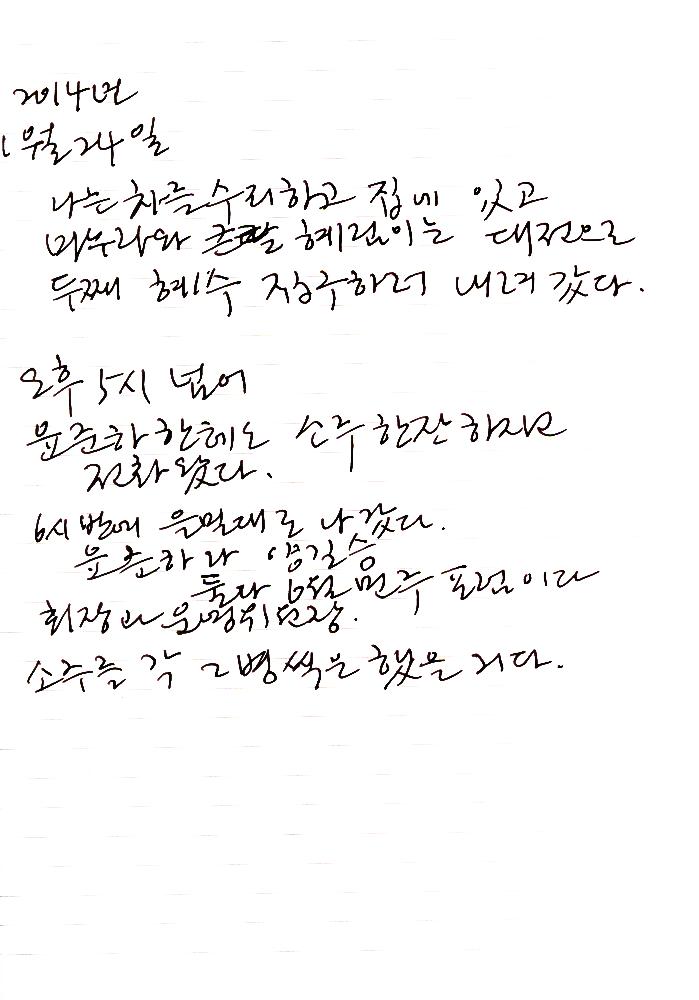 2014년
1월 24일
나는 차를 수리하고 집에 있고
마누라와 큰딸 혜림이는 대전으로
두째 혜수 친구하러 내려 갔다.
오후 5시 넘어
윤준하한테도 소주 한잔 하자고
전화 왔다.
6시 반에 은밀대로 나갔다.
윤준하와 양길승
둘다 6월 민주 포럼이다
회장과 운영위원장.
소주를 각 2병씩은 했을 거다.